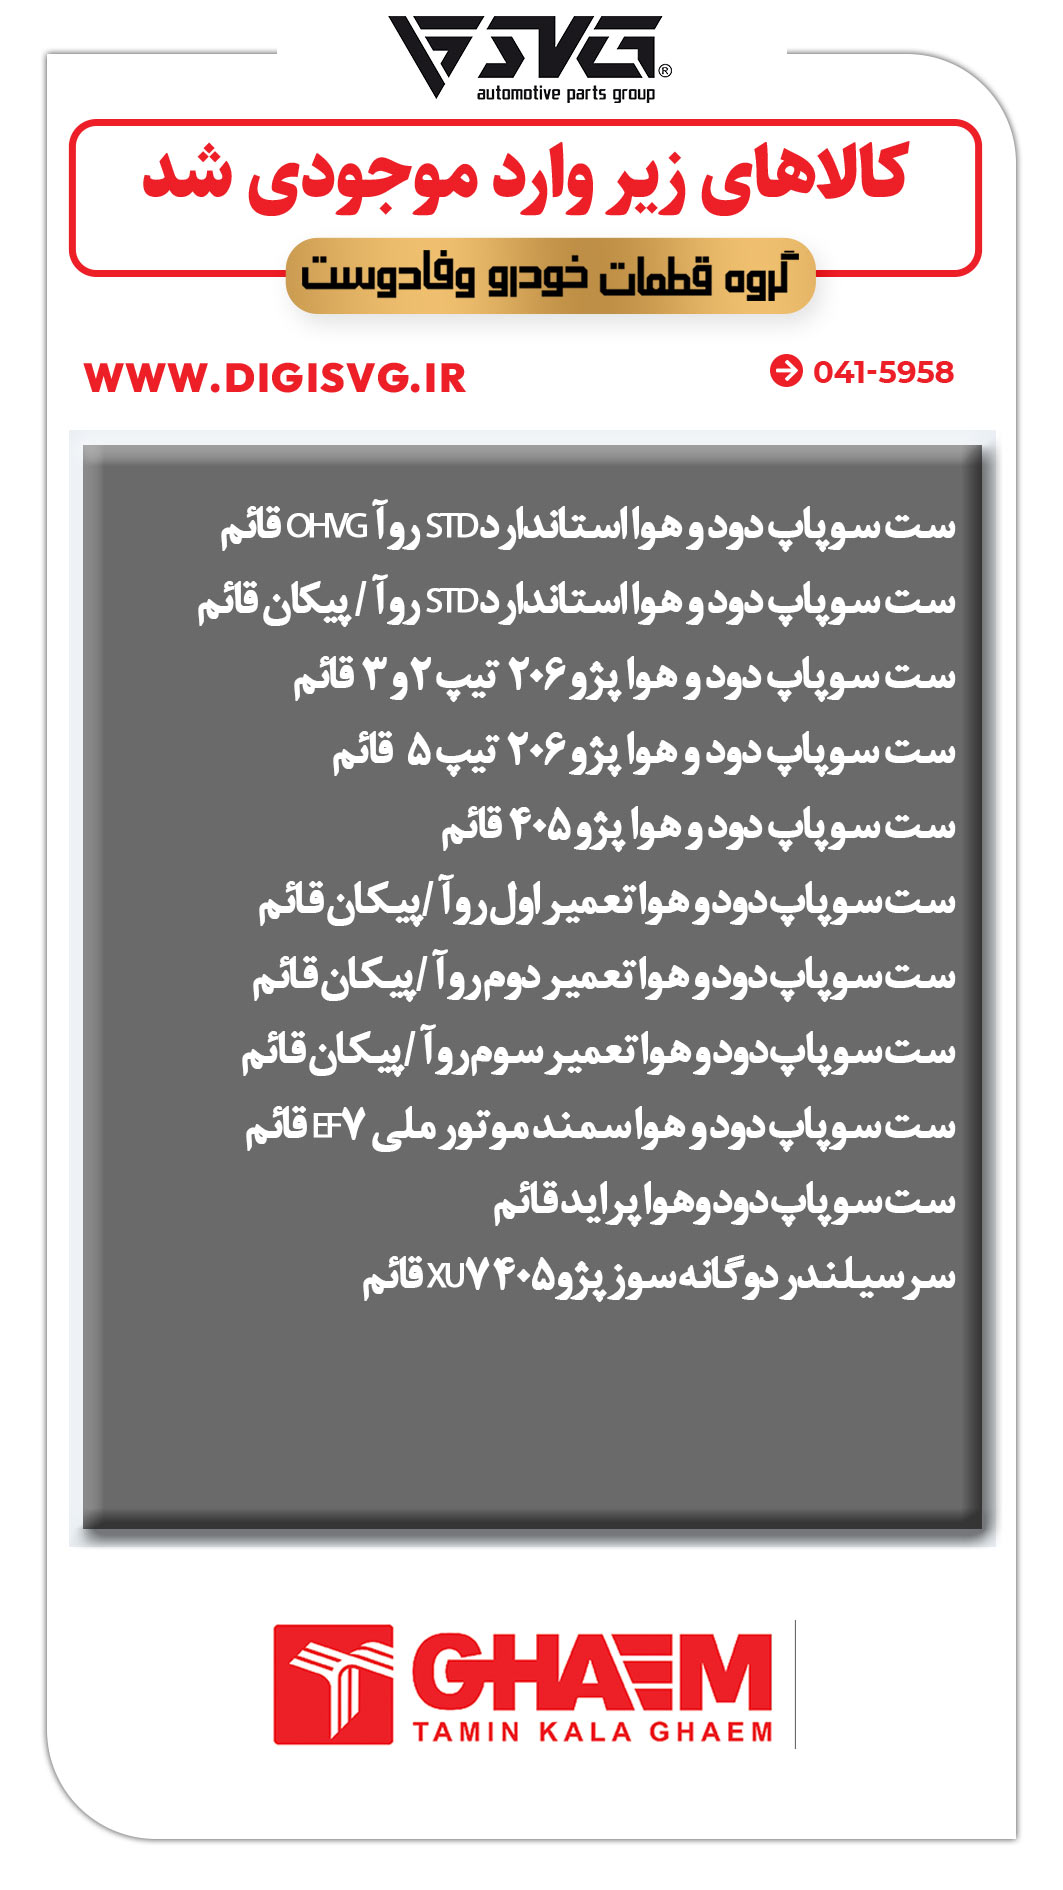 SVG®
automotive parts group
کالاهای زیر وارد موجودی شد
گروه قطعات خودرو وفادوست
WWW.DIGISVG.IR
041-5958
ست سوپاپ دود و هوا استاندارد STD روآ OHVG قائم
ست سوپاپ دود و هوا استاندارد STD روآ / پیکان قائم
ست سوپاپ دود و هوا پژو ۲۰۶ تیپ ۲ و ۳ قائم
ست سوپاپ دود و هوا پژو ۲۰۶ تیپ ۵ قائم
ست سوپاپ دود و هوا پژو ۴۰۵ قائم
ست سوپاپ دود و هوا تعمیر اول روآ /پیکان قائم
ست سوپاپ دود و هوا تعمیر دوم روآ /پیکان قائم
ست سوپاپ دود و هوا تعمیر سوم روآ /پیکان قائم
ست سوپاپ دود و هوا سمند موتور ملی EF۷ قائم
ست سوپاپ دودوهوا پراید قائم
سرسیلندر دوگانه سوز پژو ۴۰۵ XU۷ قائم
GHAEM
TAMIN KALA GHAEM